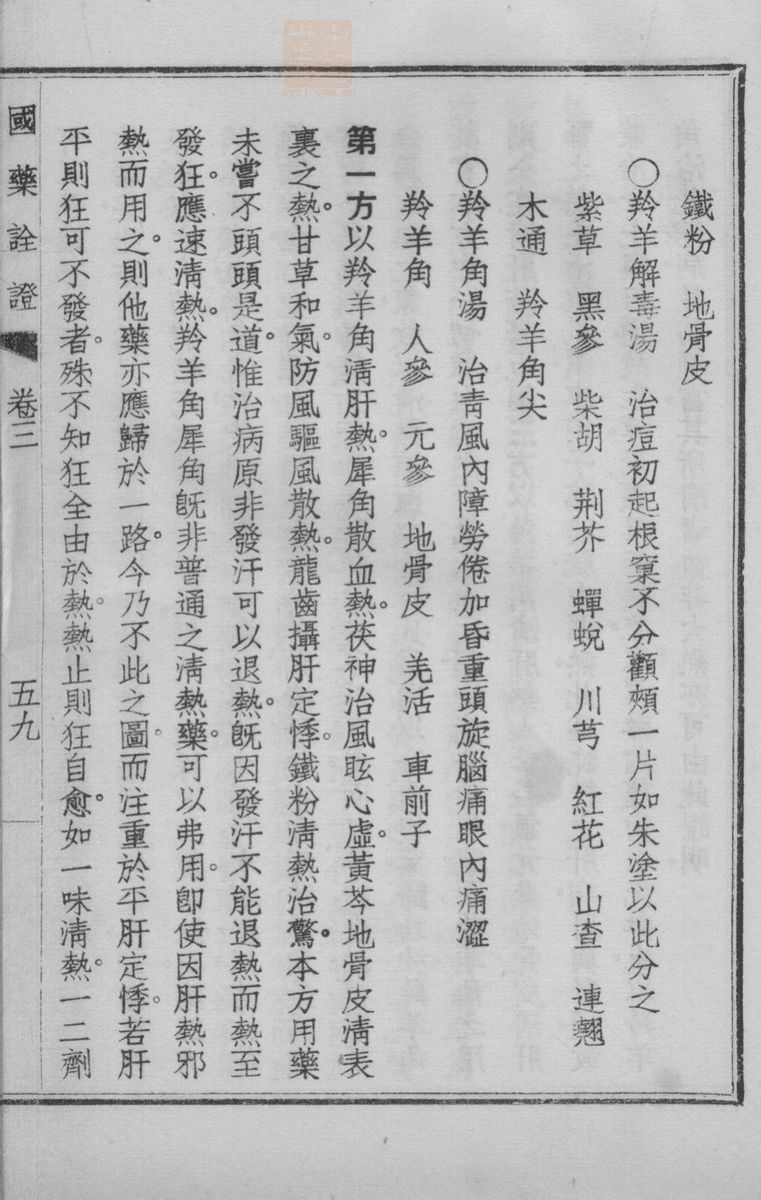 鐵粉　地骨皮
〇羚羊解毒湯　治痘初起根窠不分顴頰一片如朱塗以此分之
紫草　黑參　柴胡　荆芥　蟬蛻　川芎　紅花　山查　連翹
木通　羚羊角尖
〇羚羊角湯　治靑風內障勞倦加昏重頭旋腦痛眼內痛澀
羚羊角　人參　元參　地骨皮　羌活　車前子
第一方以羚羊角淸肝熱。犀角散血熱。茯神治風眩心虛。黃芩地骨皮淸表
裏之熱。甘草和氣。防風驅風散熱。龍齒攝肝定悸。鐵粉淸熱治驚。本方用藥
未嘗不頭頭是道。惟治病原非發汗可以退熱。旣因發汗不能退熱而熱至
發狂。應速淸熱。羚羊角犀角旣非普通之淸熱藥。可以弗用。卽使因肝熱邪
熱而用之。則他藥亦應歸於一路。今乃不此之圖。而注重於平肝定悸。若肝
平則狂可不發者。殊不知狂全由於熱。熱止則狂自愈。如一味淸熱。一二劑
國藥詮證　卷三　五九